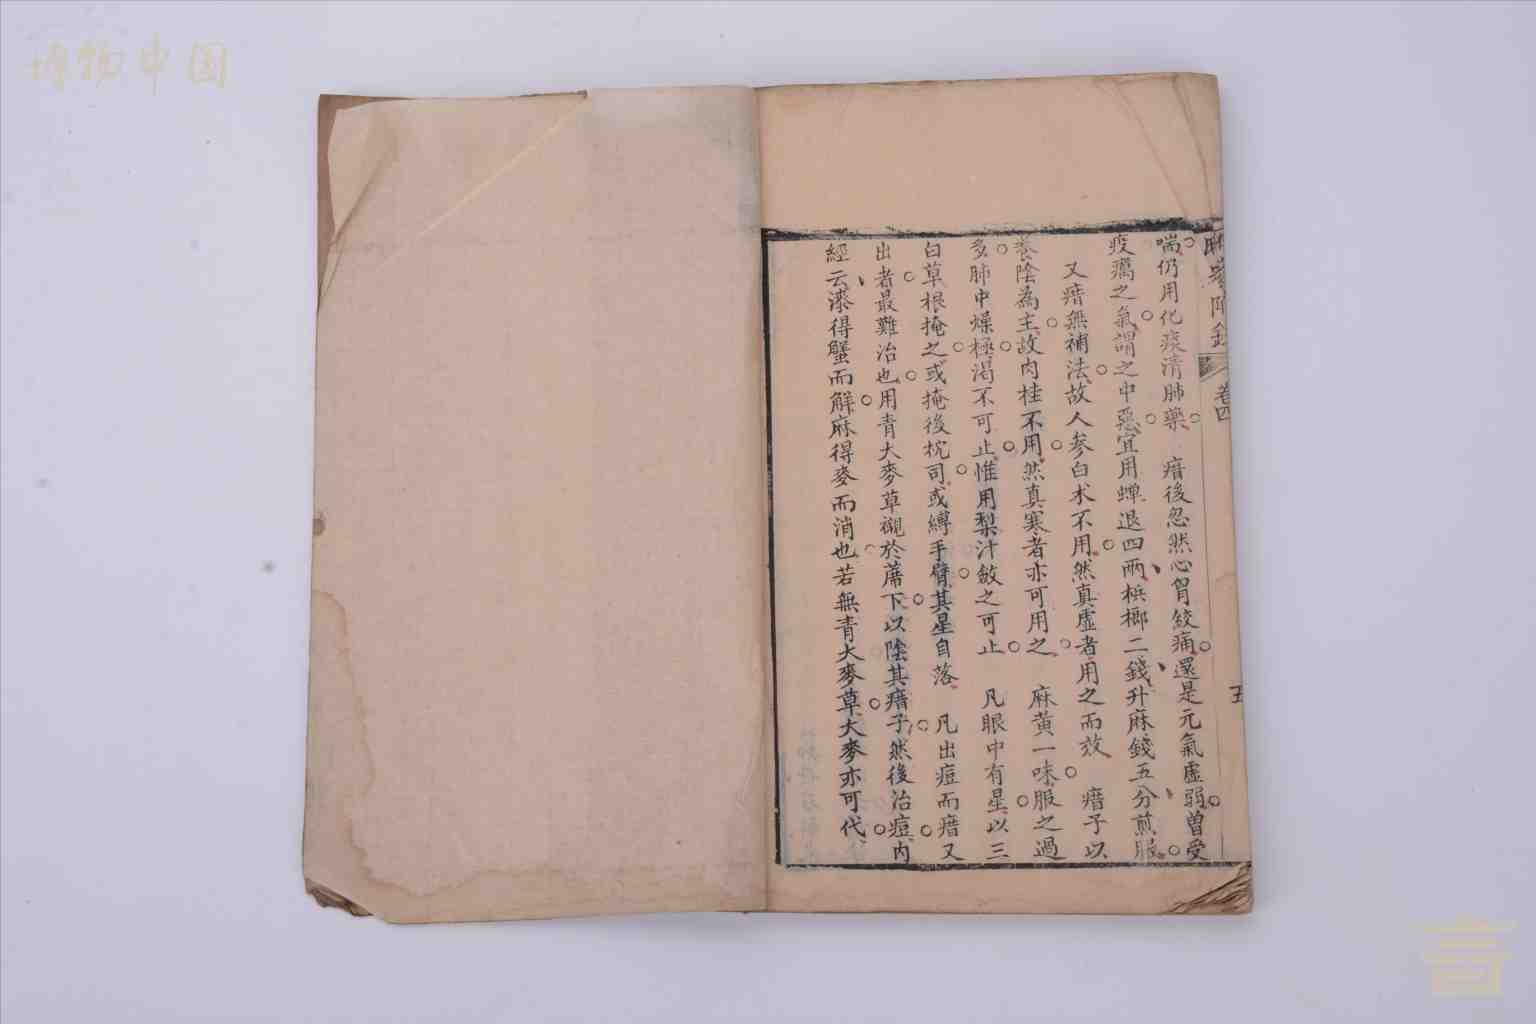 博物中国
卷四
五
喘仍用化痰清肺藥 瘄後忽然心胃絞痛還是元氣虛弱曽受
疫癘之氣謂之中惡宜用蟬退四兩梹榔二錢升麻錢五分煎服
又瘄無補法故人參白术不用然真虛者用之而效 瘄子以
養陰為主故肉桂不用然真寒者亦可用之 麻黄一味服之過
多肺中燥極渴不可止惟用梨汁斂之可止 凡眼中有星以三
白草根掩之或掩後枕司或縛手臂其星自落 凡出痘而瘄又
出者最難治也用青大麥草襯於蓆下以陰其瘄子然後治痘内
經云漆得蟹而解麻得麥而消也若無青大麥草大麥亦可代